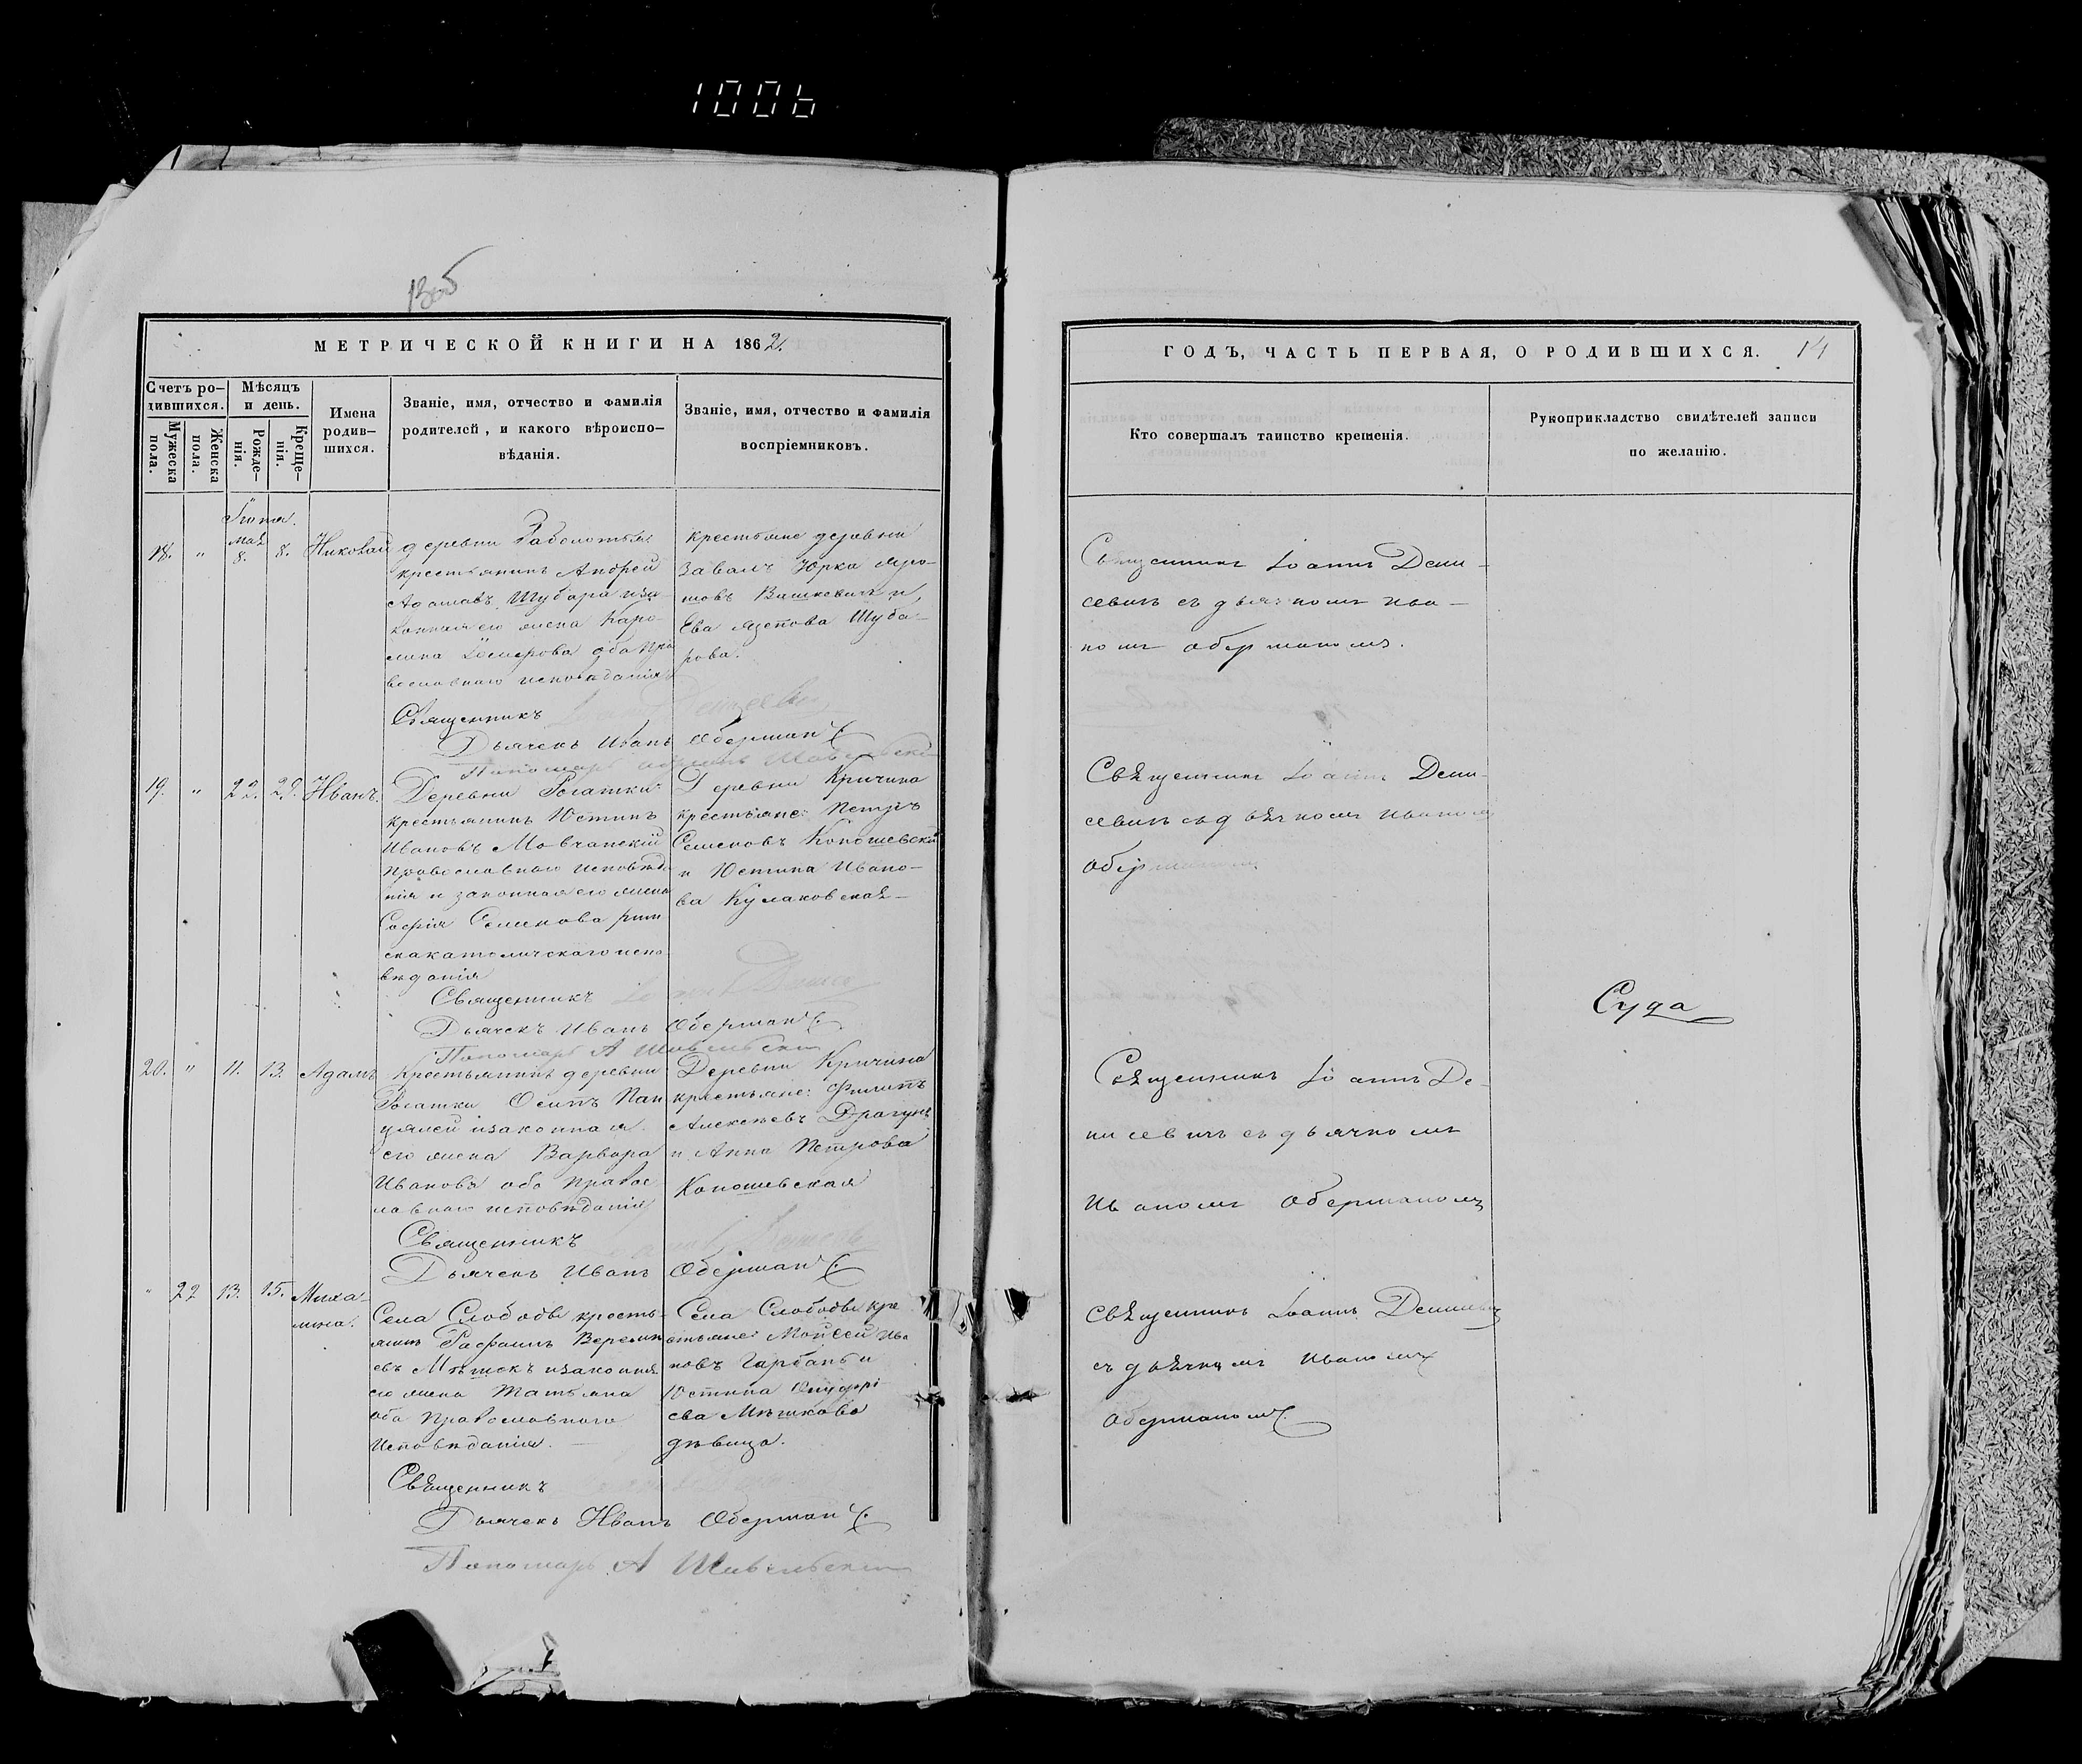 1006
13об
МЕТРИЧЕСКОЙ КНИГИ НА 1862.
Счетъ ро-
дившихся.
Мѣсяцъ
и день.
Мужеска
пола.
Женска
пола.
Рожде-
нія.
Креще-
нія.
Имена
родив-
шихся.
Званіе, имя, отчество и фамилія
родителей, и какого вѣроиспо-
вѣданія.
Званіе, имя, отчество и фамилія
воспріемниковъ.
18. " 8. 8. Николай
деревни Заболотья
крестьянинъ Андрей
Адамавъ Шубара иза-
конная его жена Каро-
лина оба пра
вославнаго исповѣданія
крестьяне деревни
Завалъ Юрка
и
Ева Язепова Шуба-
рова.
Священникъ
Дьячекъ Иванъ Оберман
Пономарь
19. " 22. 29. Иванъ.
Деревни Рогатки
крестьянинъ Юстинъ
Ивановъ Мовчанскій
православнаго исповѣда
нія и законная его жена
Софія Семенова рим
скакатоличскаго испо
вѣданія
Деревни Кричина
крестьяне: Петръ
Семеновъ Коношевскій
и Юстина Ивано-
ва Кулаковская
Священникъ
Дьячекъ Иванъ Оберман
Пономарь А
20. " 11. 13. Адамъ
Крестьянинъ деревни
Рогатки Осипъ Пан
цялей изаконная
его жена Варвара
Иванова оба правос
лавнаго исповѣданія
Деревни Кричина
крестьяне: Филипъ
Алексѣевъ Драгунъ
и Анна Петрова
Коношевская
Священникъ
Дьячекъ Иванъ Оберман
" 22 13. 15. Миха-
лина.
Села Слободы кресть-
янинъ
Мѣшекъ изаконная
его жена Татьяна
оба православнаго
исповѣданія.
Села Слободы кре
стьяне: Моисей Ива
новъ Гарбань и
Юстина Онуфрі
ева Мѣшкова
дѣвица.
Священникъ
Дьячекъ Иванъ Оберман
Пономарь А
ГОДЪ, ЧАСТЬ ПЕРВАЯ, О РОДИВШИХСЯ. 14
Кто совершалъ таинство крещенія.
Рукоприкладство свидѣтелей записи
по желанію.
Священникъ Іоаннъ Дени-
севичъ съ дьячкомъ Ива-
номъ Оберманомъ.
Священникъ Іоаннъ Дени-
севичъ съ дьячкомъ Иваномъ
Оберманомъ
Суда
Священникъ Іоаннъ Де-
нисевичъ съ дьячкомъ
Иваномъ Оберманомъ
Священникъ Іоаннъ Денисевичъ
съ дьячкомъ Иваномъ
Оберманомъ